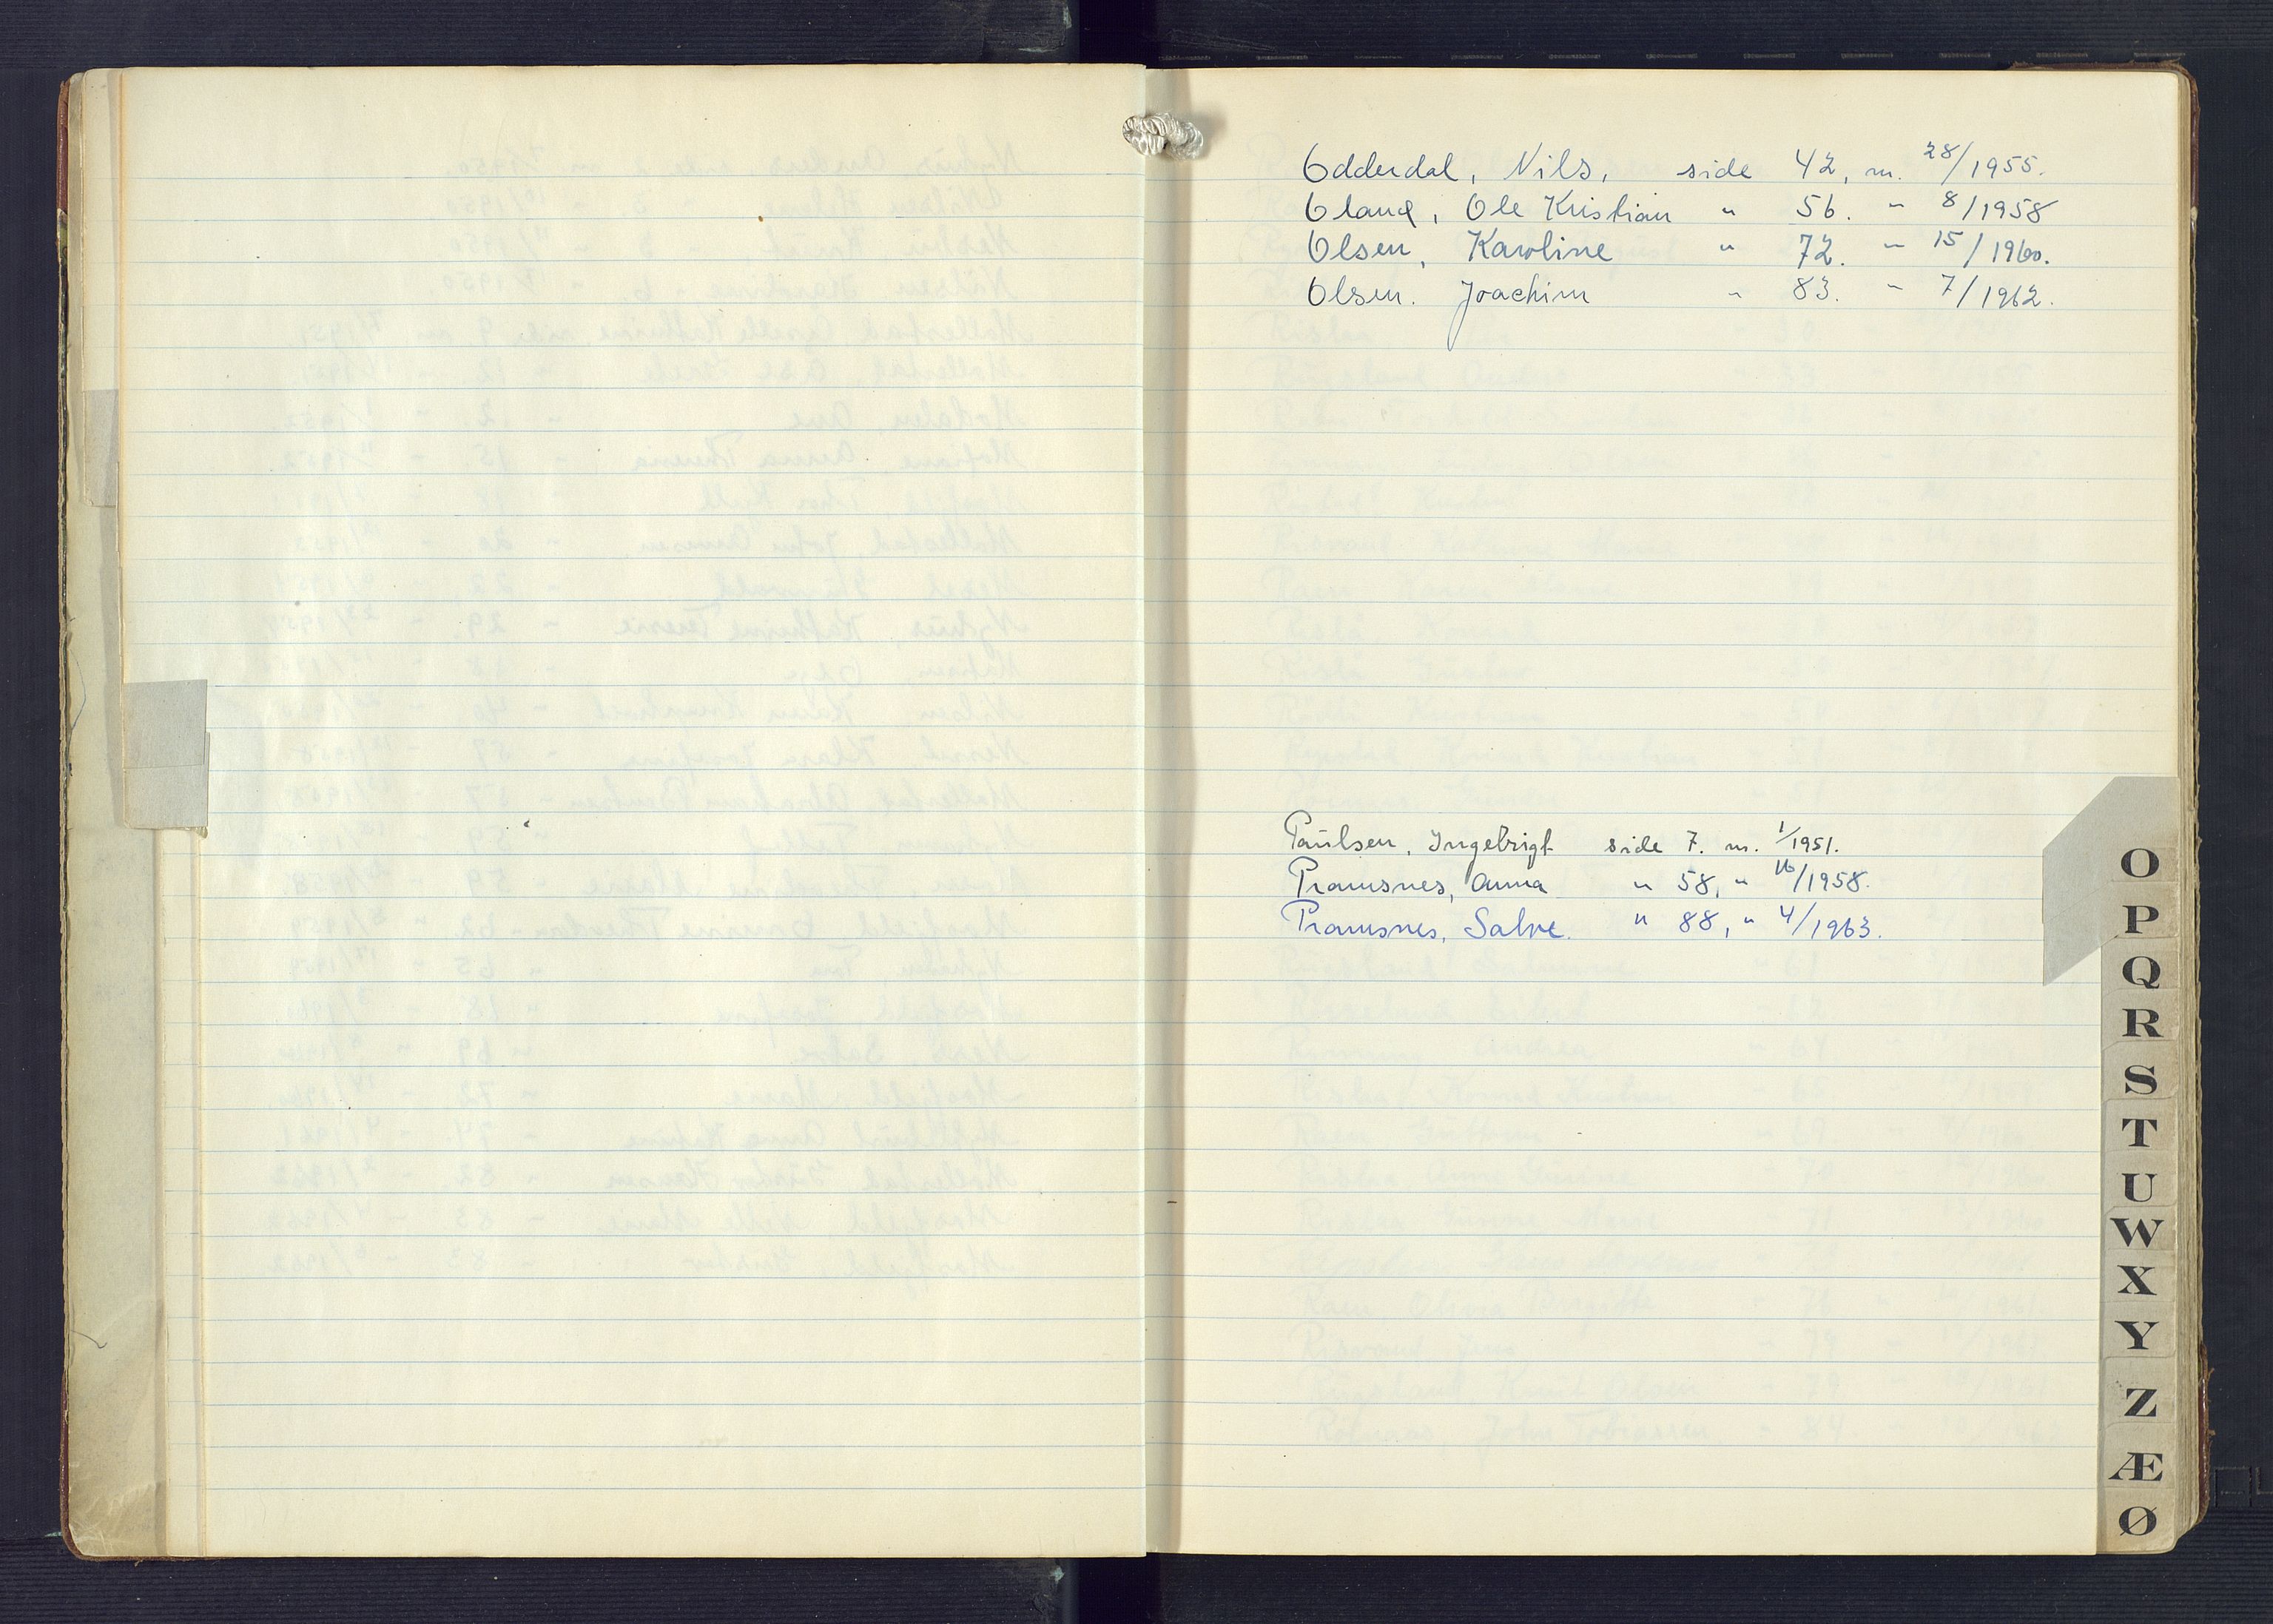 Odderdal, Nils, side 42, m. 28/1955.
Oland, Ole Kristian " 56. " 8/1958
Olsen, Karoline " 72. " 15/1960.
Olsen. Joachim " 83. " 7/1962.
Paulsen, Ingebrigt side 7. m. 1/1951.
Pramsnes, Anna " 58, " 16/1958.
Pramsnes, Salve. " 88, " 4/1963.
O
P
Q
R
S
T
U
W
X
Y
Z
Æ
Ø